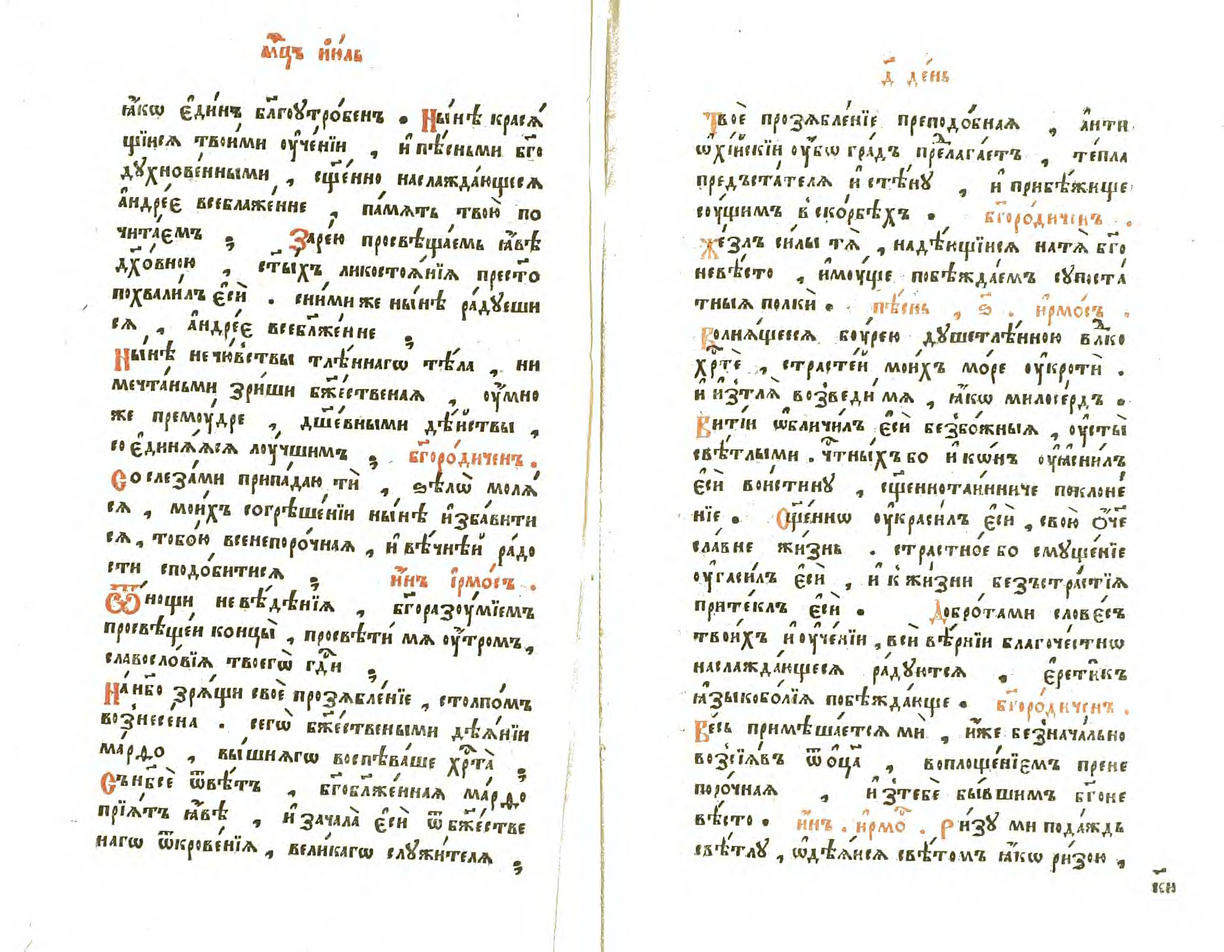 мⷭ҇цъ і҆ю́ль
ꙗ҆́кѡ є҆ди́нъ бл҃гоꙋтро́бенъ . Ны́нѣ красѧ́
щїисѧ твои́ми оу҆че́нїи , и҆ пѣ́сньми бг҃о
дꙋхнове́нными , сщ҃е́нно наслажда́ющесѧ
а҆ндре́е всебл҃же́нне , па́мѧть твою̀ по
чита́емъ ; Заре́ю просвѣща́емь ꙗ҆́вѣ
дꙋхо́вною , ст҃ы́хъ ликостоѧ́нїѧ престо
похвали́лъ є҆сѝ . сни́миже ны́нѣ ра́дꙋеши
сѧ , а҆ндре́е всебл҃же́нне ;
Ны́нѣ нечю́вствы тлѣ́ннагѡ тѣ́ла , ни
мечта́ньми зри́ши бж҃е́ственаѧ , оу҆́мно
же премꙋ́дре , дш҃е́вными дѣ́йствы ,
соєдинѧ́ѧсѧ лоу́чшимъ ; бг҃оро́диченъ .
Со слеза́ми припа́даю тѝ , ѕѣлѡ̀ молѧ́
сѧ , мои́хъ согрѣше́нїи ны́нѣ и҆зба́вити
сѧ , тобо́ю всенепоро́чнаѧ , и҆ вѣ́чнѣй ра́до
сти сподо́битисѧ ; и҆́нъ і҆рмо́съ .
Ѿ но́щи невѣ́дѣнїѧ , бг҃оразꙋ́мїемъ
просвѣще́й концы̀ , просвѣти́ мѧ оу҆́тромъ ,
славосло́вїѧ твоегѡ̀ гдⷭ҇и ;
На́ нб҃о зрѧ́щи своѐ прозѧбле́нїе , столпо́мъ
вознесена . сегѡ̀ бж҃е́ствеными дѣѧ́нїи
ма́рѳо , вы́шнѧгѡ воспѣва́ше хрⷭ҇та̀ ;
Съ нб҃сѐ ѿвѣ́тъ , бг҃обл҃же́ннаѧ ма́рѳо
прїѧ́тъ ꙗ҆́вѣ , и҆ зача́ла є҆сѝ ѿ бж҃е́стве
нагѡ ѿкрове́нїѧ , вели́кагѡ слꙋжи́телѧ ;
д҃ де́нь
Твоѐ прозѧбле́нїе преподо́бнаѧ , а҆нти
ѡхі́йскїи оу҆́бѡ гра́дъ пре́лагаетъ , те́пла
предъста́телѧ и҆ стѣ́нꙋ , и҆ прибѣ́жище
соу́щимъ в ско́рбѣхъ . бг҃оро́диченъ .
Же́злъ си́лы тѧ̀ , надѣ́ющїисѧ на тѧ̀ бг҃о
невѣ́сто , и҆мꙋ́ще побѣжда́емъ сꙋпоста́
тныѧ полкѝ . пѣ́снь , ѕ҃ . і҆рмо́съ .
Волнѧ́щеесѧ бꙋ́рею дꙋшетлѣ́нною влⷣко
хрⷭ҇тѐ , страсте́й мои́хъ мо́ре оу҆кротѝ .
и҆ и҆зтлѧ̀ возведи́ мѧ , ꙗ҆́кѡ милосе́рдъ .
Вити́и ѡ҆бличи́лъ є҆сѝ безбо́жныѧ , оу҆сты̀
свѣ́тлыми . чⷭ҇тны́хъ бо и҆ кѡ́нъ оу҆ꙗсни́лъ
є҆сѝ вои́стинꙋ , сщ҃еннота́инниче поклоне́
нїе . Сщ҃е́ннѡ оу҆краси́лъ є҆сѝ , свою̀ ѻ҆́че
сла́вне жи́знь . стра́стное бо смꙋще́нїе
оу҆гаси́лъ є҆сѝ , и҆ к жи́зни безъстра́стїѧ
прите́клъ є҆сѝ . Добро́тами слове́съ
твои́хъ и҆ оу҆че́нїи , всѝ вѣ́рнїи благоче́стнѡ
наслажда́ющесѧ ра́дꙋютсѧ . є҆рети́къ
ꙗ҆зыкобо́лїѧ побѣжда́юще . бг҃оро́диченъ .
Ве́сь примѣша́етсѧ мѝ , и҆́же безнача́льно
возсїѧ́въ ѿ ѻц҃а̀ , воплоще́нїемъ прене
поро́чнаѧ , и҆з тебѐ бы́вшимъ бг҃оне
вѣ́сто . и҆́нъ . і҆рмо́ . Ри́зꙋ ми пода́ждь
свѣ́тлꙋ , ѡ҆дѣ́ѧисѧ свѣ́томъ ꙗ҆́кѡ ри́зою ,
к҃и